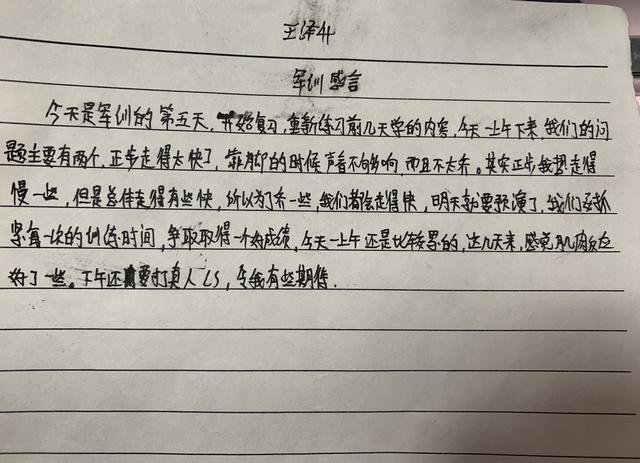 王泽升
军训感言
今天是军训的第五天,开始复习,重新练习前几天学的内容,今天一上午下来,我们的问
题主要有两个,正步走得太快了,靠脚的时候声音不够响,而且不太齐。其实正步我想走得
慢一些,但是总体走得有些快,所以为了齐一些,我们都会走得快,明天就要预演了,我们要抓
紧每一次的训练时间,争取取得一个好成绩,今天一上午还是比较累的,这几天来,感觉肌肉反应
好了一些。下午还要打真人CS,令我有些期待.